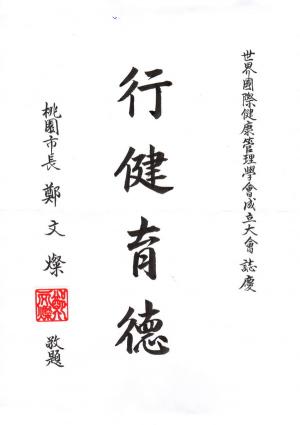 世界國際健康管理學會成立大會 誌慶
行健育德
桃園市長 鄭文燦 敬題
鄭文燦